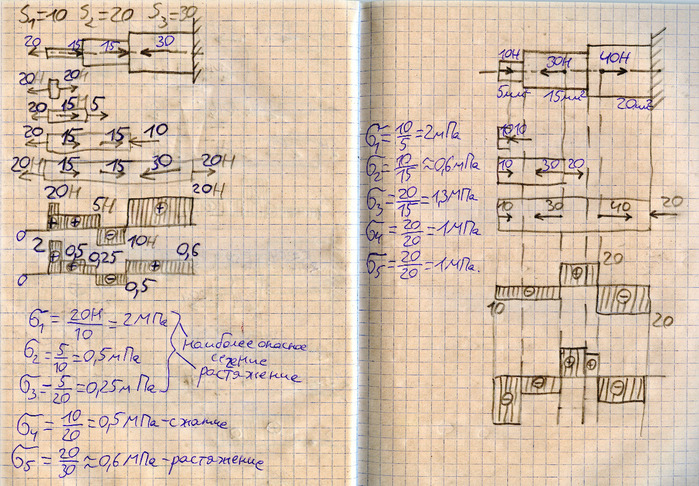 S₁=10 S₂=20 S₃=30
20 15 15 30
20Н 20Н
20 15 5
20 15 15 10
20Н 15 15 30 20Н
20Н 5Н 20Н
0 10Н
2 0,5 0,25 0,6
0 0,5
σ₁ = 20Н/10 = 2 МПа
σ₂ = 5/10 = 0,5 мПа
σ₃ = 5/20 = 0,25 мПа
наиболее опасное
сечение
растяжение
σ₄ = 10/20 = 0,5 МПа - сжатие
σ₅ = 20/30 ≈ 0,6 МПа - растяжение
10Н 30Н 40Н
5мм² 15мм² 20мм²
σ₁ = 10/5 = 2мПа
σ₂ = 10/15 ≈ 0,6 мПа
σ₃ = 20/15 = 1,3 МПа
σ₄ = 20/20 = 1 МПа
σ₅ = 20/20 = 1 МПа.
10 10
10 30 20
10 30 40 20
10 20
20